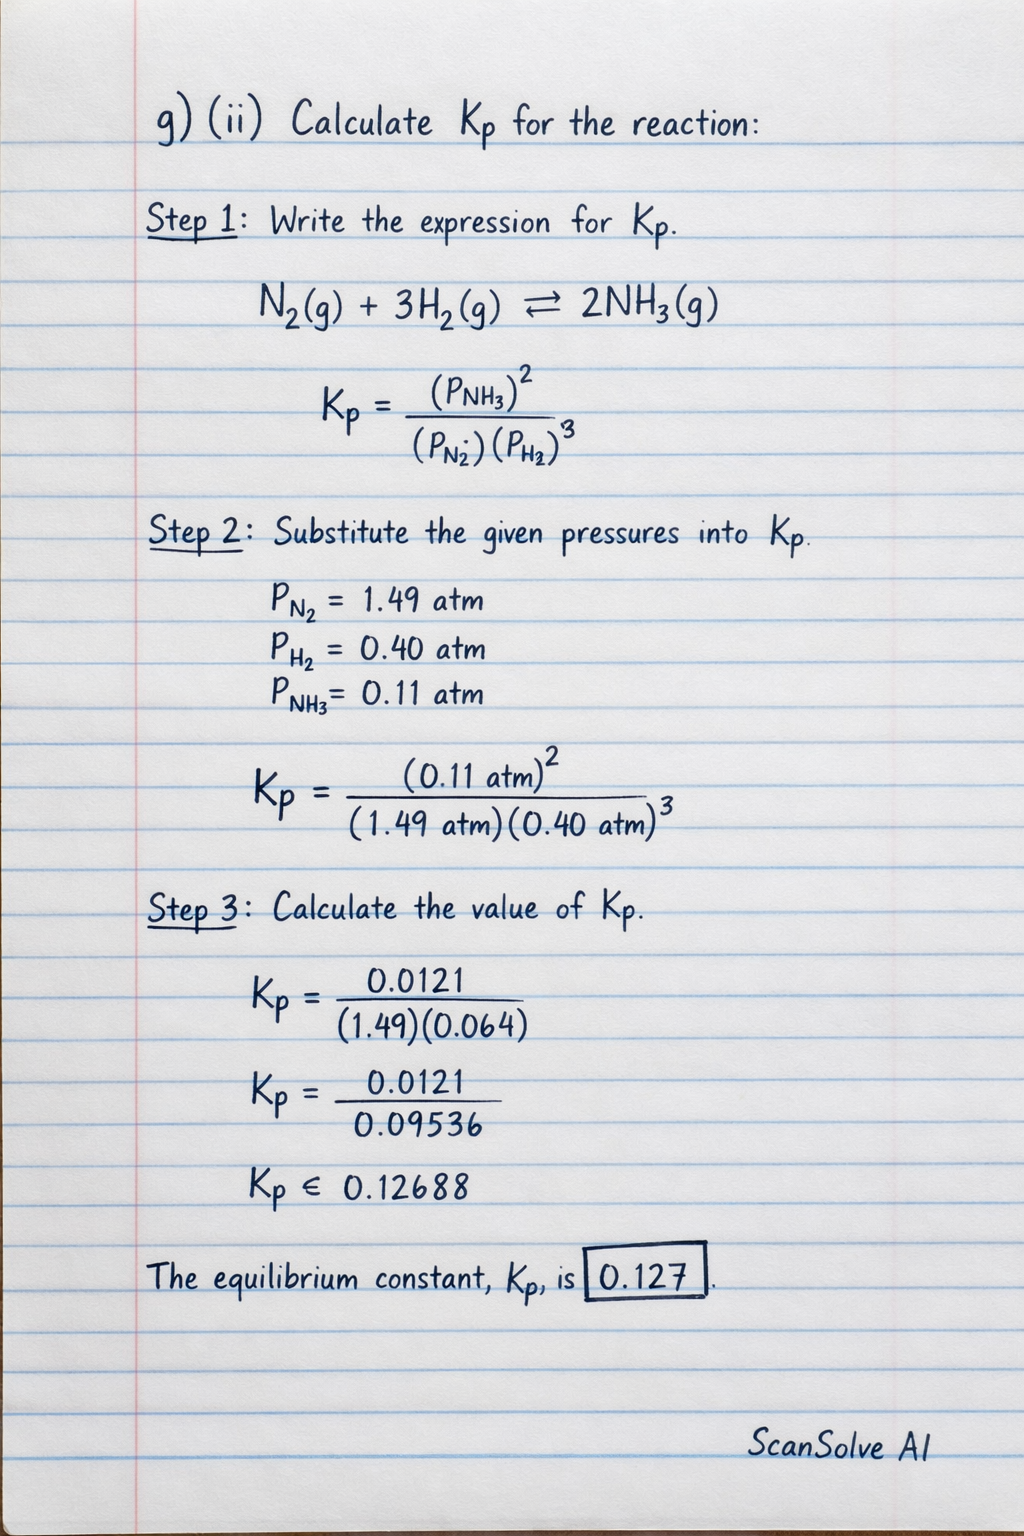 g) (ii) Calculate Kp for the reaction:
Step 1: Write the expression for Kp.
N₂(g) + 3H₂(g) ⇌ 2NH₃(g)
Kp = (P_NH₃)² / (P_N₂)(P_H₂)³
Step 2: Substitute the given pressures into Kp.
P_N₂ = 1.49 atm
P_H₂ = 0.40 atm
P_NH₃ = 0.11 atm
Kp = (0.11 atm)² / (1.49 atm)(0.40 atm)³
Step 3: Calculate the value of Kp.
Kp = 0.0121 / (1.49)(0.064)
Kp = 0.0121 / 0.09536
Kp ∈ 0.12688
The equilibrium constant, Kp, is 0.127.
ScanSolve AI